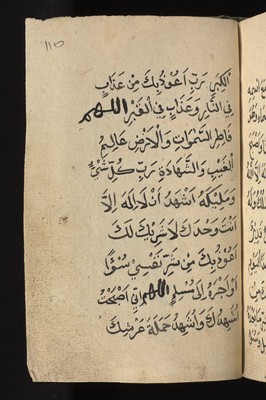 ١١٥
الْكِبَرِ رَبِّ اَعُوذُ بِكَ مِنْ عَذَابٍ
فِي النَّارِ وَعَذَابٍ فِي الْقَبْرِ اللهم
فَاطِرَ السَّمٰوَاتِ وَالْاَرْضِ عَالِمَ
الْغَيْبِ وَالشَّهَادَةِ رَبَّ كُلِّ شَيْءٍ
وَمَلِيكَهُ اَشْهَدُ اَنْ لَا اِلَهَ اِلَّا
اَنْتَ وَحْدَكَ لَا شَرِيْكَ لَكَ
اَعُوْذُ بِكَ مِنْ شَرِّ نَفْسِي سُوْءًا
اَوْ اَجُرَّهُ اِلَى مُسْلِمٍ اللهم اِنِّي اَصْبَحْتُ
اُشْهِدُكَ وَاُشْهِدُ حَمَلَةَ عَرْشِكَ